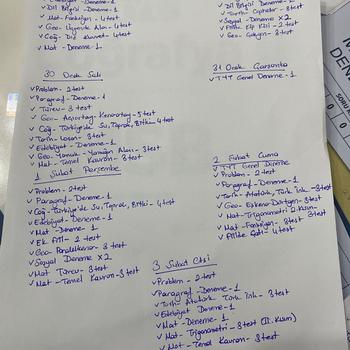 ✓ Dil Bilgisi Deneme-1
✓ Mat- Fonksiyon - 4 test
✓ Geo- Üçgende Alan - 4 test
✓ Coğ- Dış Kuvvet - 4 test
✓ Mat - Deneme-1
✓ Dil Bilgisi Deneme-1
✓ Sosyal - Deneme X2
✓ Fiilde Ek Kök - 2 test
30 Ocak Salı
✓ Problem - 2 test
✓ Paragraf - Deneme-1
✓ Türev - 3 test
✓ Geo- Açıortay - Kenarortay - 5 test
✓ Coğ- Türkiye'de Su, Toprak, Bitki- 4 test
✓ Edebiyat - Deneme-1
✓ Geo- Yamuk - Yamuğun Alanı - 3 test
✓ Mat- Temel Kavram - 3 test
31 Ocak Çarşamba
✓ TYT Genel Deneme-1
1 Şubat Perşembe
✓ Problem - 2 test
✓ Paragraf - Deneme-1
✓ Coğ- Türkiye'de Su, Toprak, Bitki - 4 test
✓ Edebiyat - Deneme-1
✓ Mat - Deneme 1
✓ Ek Fiil - 2 test
✓ Geo- Paralelkenar - 3 test
✓ Sosyal Deneme X2
✓ Mat Türev - 3 test
✓ Mat - Temel Kavram - 3 test
2 Şubat Cuma
✓ TYT Genel Deneme
✓ Problem - 2 test
✓ Paragraf - Deneme-1
✓ Geo - Eşkenar Dörtgen - 3 test
✓ Mat - Fonksiyon - 3 test
✓ Fiilde Çatı - 4 test
3 Şubat Ctsi
✓ Problem - 2 test
✓ Paragraf - Deneme-1
✓ Edebiyat Deneme-1
✓ Mat - Deneme-1
✓ Mat - Trigonometri - 3 test (II. Kısım)
✓ Mat - Temel Kavram - 3 test